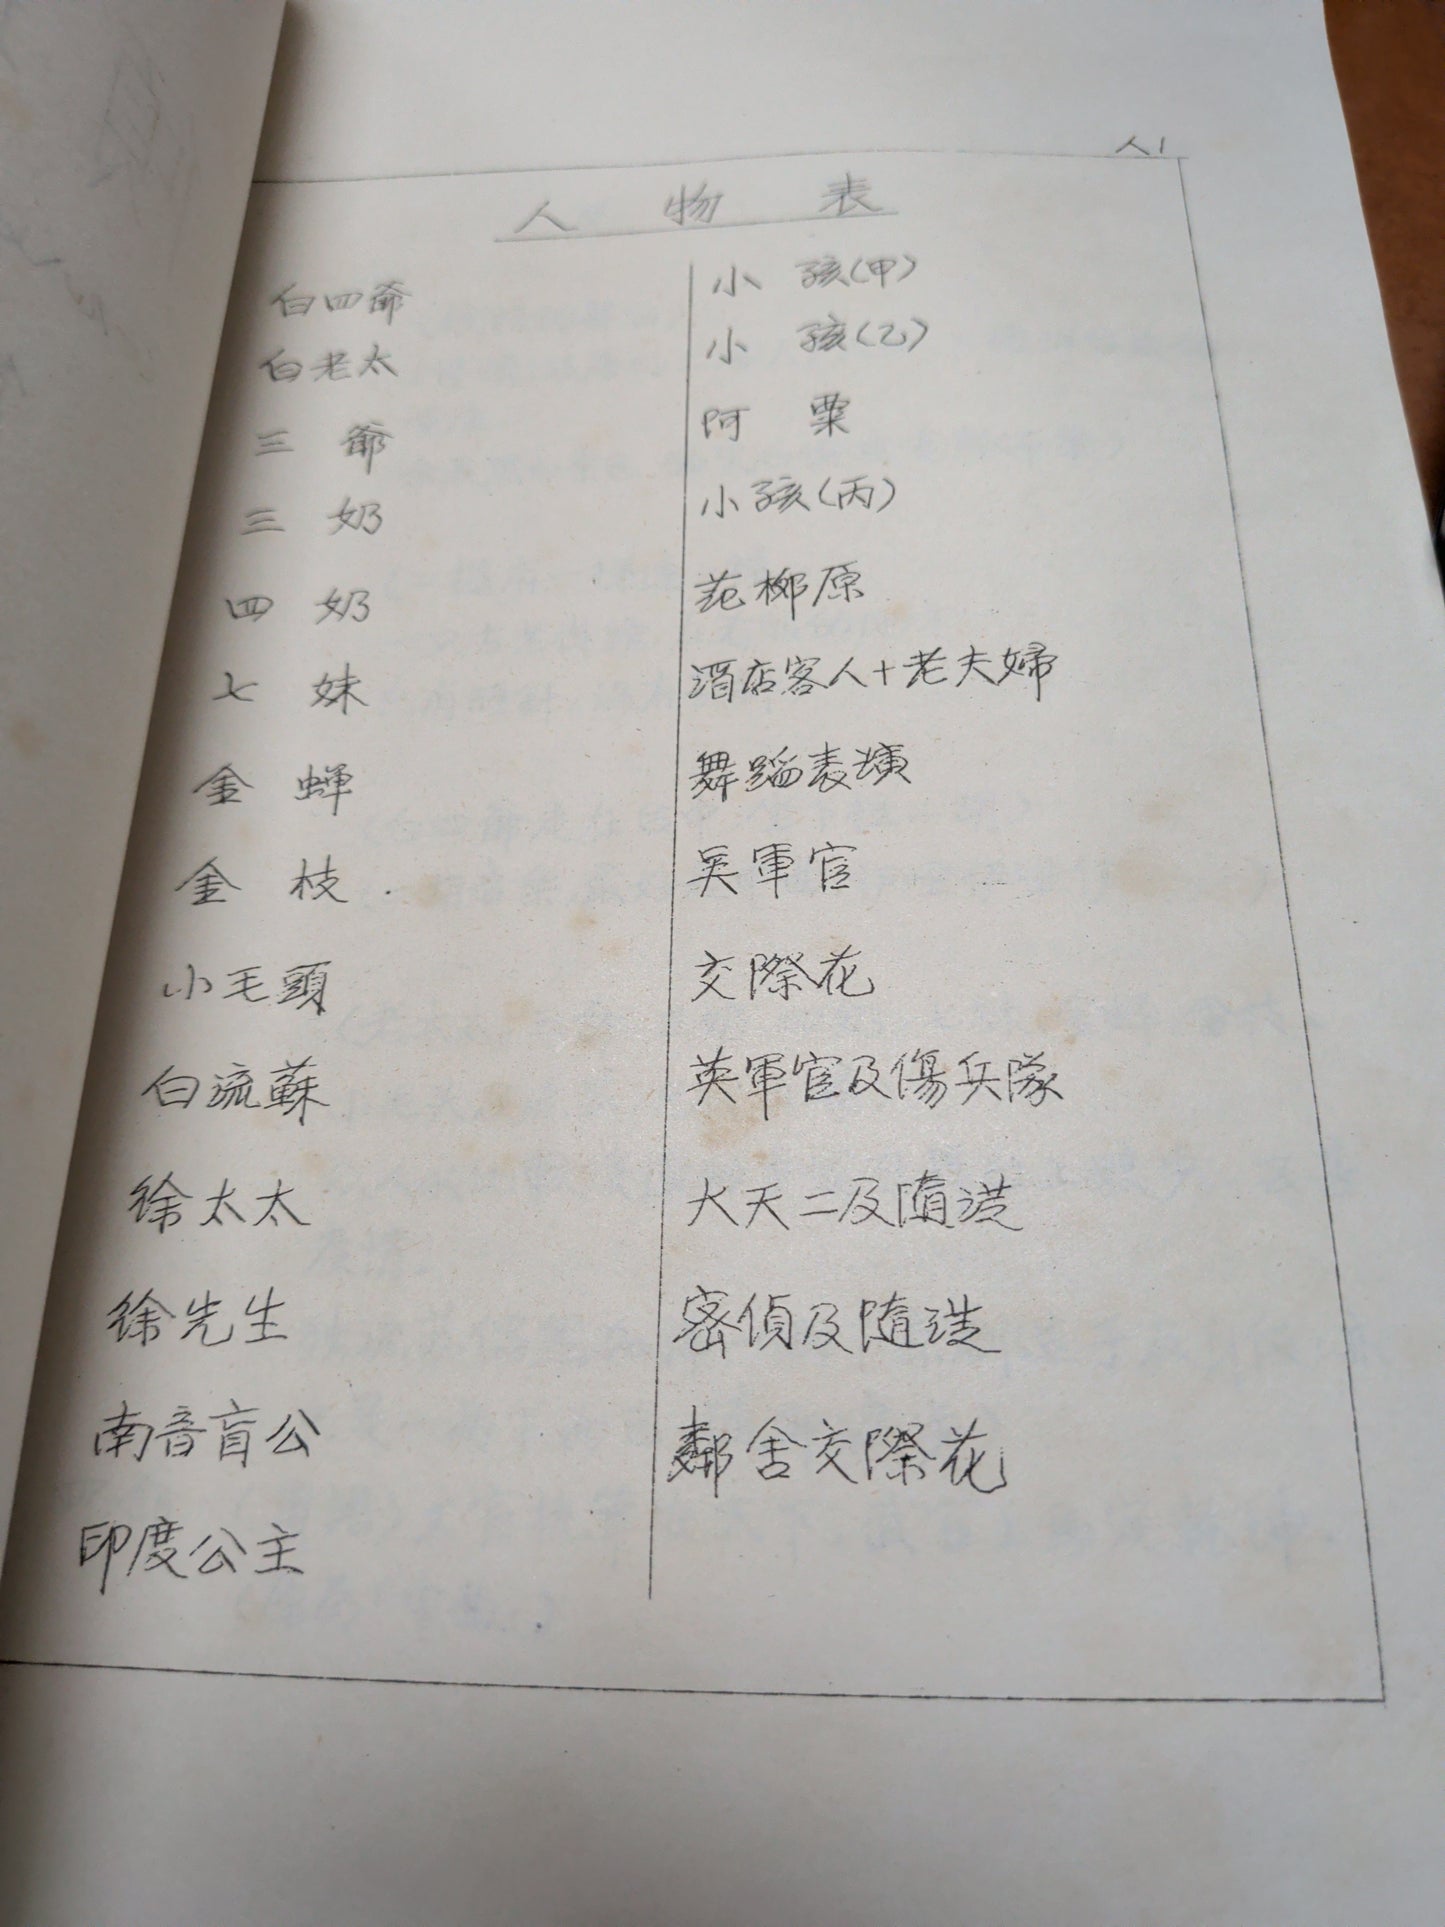 人1
人物表
白四爺
白老太
三爺
三奶
四奶
七妹
金蟬
金枝
小毛頭
白流蘇
徐太太
徐先生
南音盲公
印度公主
小孩(甲)
小孩(乙)
阿栗
小孩(丙)
范柳原
酒店客人+老夫婦
舞蹈表演
吳軍官
交際花
英軍官及傷兵隊
大天二及隨從
密偵及隨從
鄰舍交際花